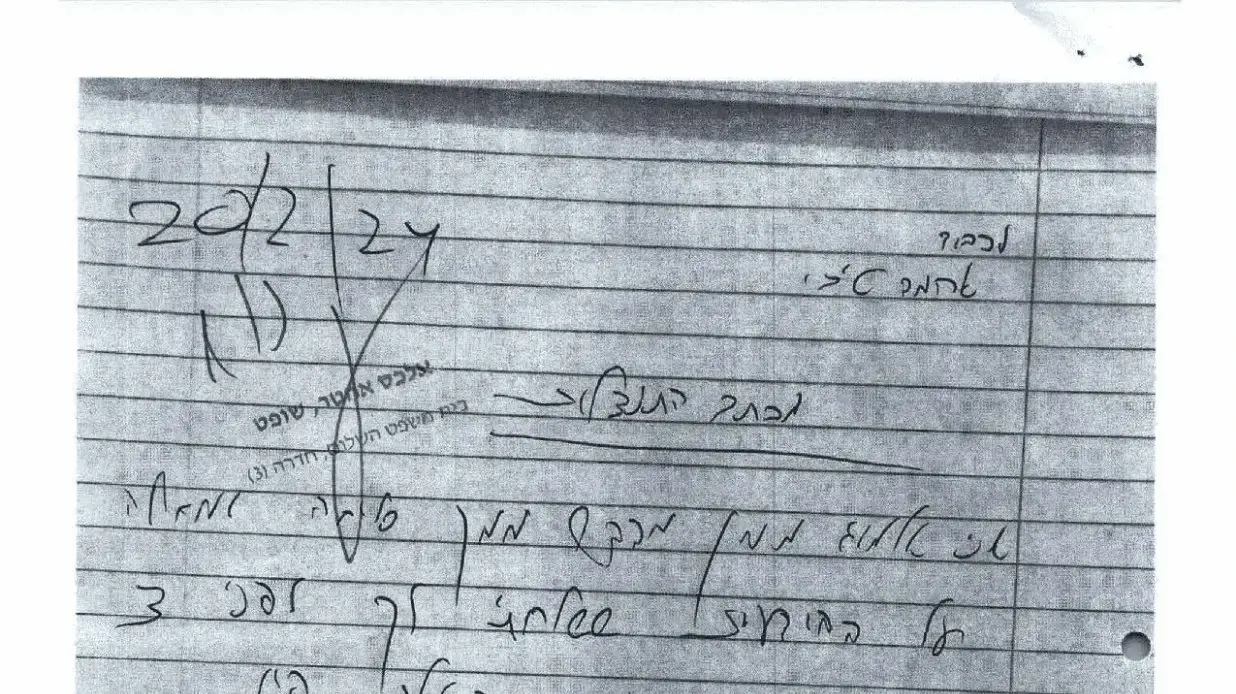 לכבוד
אחמד טיבי
20/2/24
מכתב התנצלות
אלכס אחטר, שופט
בית משפט השלום, חדרה (3)
אני אלמוג ממן מבקש ממך סליחה ומחילה
על ההודעות ששלחתי לך לפני 3